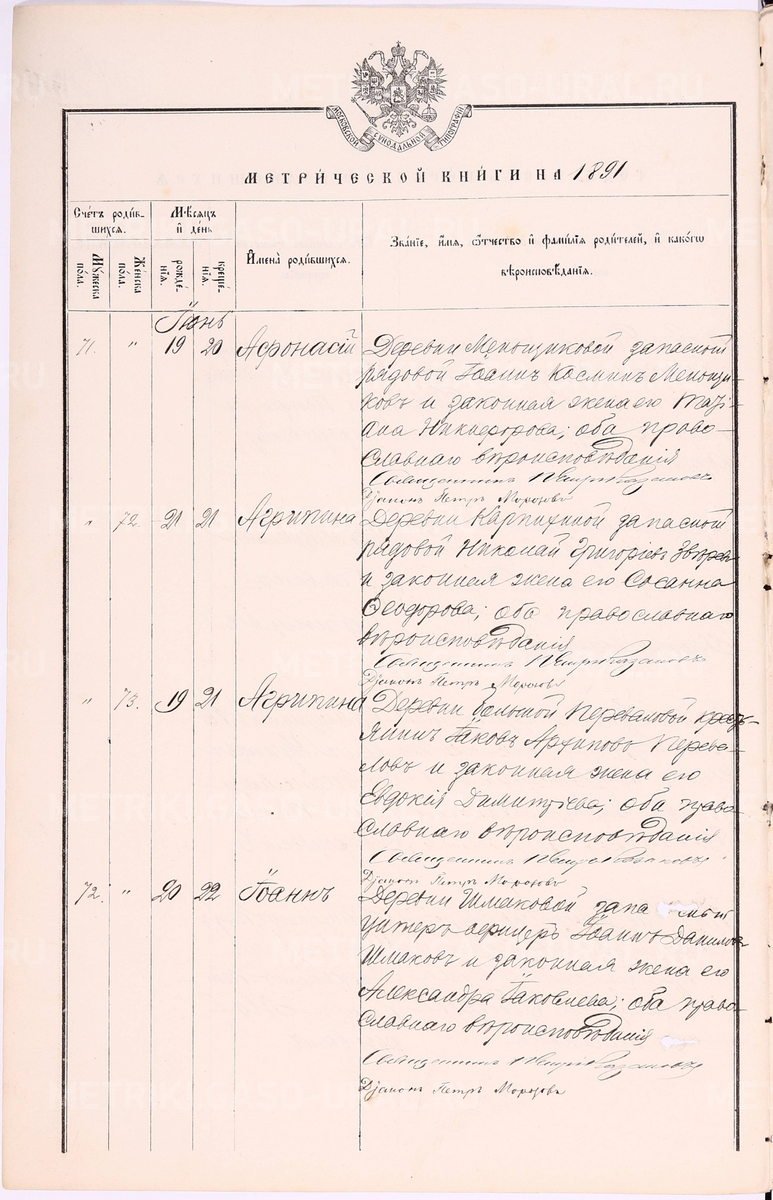 МОСКОВСКОЙ СѴНОДАЛЬНОЙ ТИПОГРАФІИ
МЕТРИ́ЧЕСКОЙ КНИ́ГИ НА 1891
Сче́тъ роди́в-
шихся.
Мꙋ́жеска
пола.
Же́нска
пола.
М́ѣсяцъ
и҆ де́нь
рожде́-
нїѧ.
креще́-
нїѧ.
И҆мена̀ роди́вшихся.
Зва́нїе, и҆́мѧ, ѻ҆́тчество и҆ фами́лїѧ роди́телей, и҆ како́гѡ
вѣроисповѣ́данїѧ.
Іюнь
71. " 19 20 Афонасій Деревни Менощиковой запасной
рядовой Іоаннъ Косминъ Менощи-
ковъ и законная жена его
Никифорова; оба право-
славнаго вѣроисповѣданія
Священникъ Петръ Казаковъ
Діаконъ Петръ Морозовъ
" 72. 21 21 Агрипина Деревни Карпихиной запасной
рядовой Николай Григоріевъ Звѣрев
и законная жена его Сосанна
Ѳеодорова; оба православнаго
вѣроисповѣданія
Священникъ Петръ Казаковъ
Діаконъ Петръ Морозовъ
" 73. 19 21 Агрипина Деревни Большой Переваловой кресть-
янинъ Іаковъ Архипово Перева-
ловъ и законная жена его
Евдокія Димитріева; оба право-
славнаго вѣроисповѣданія
Священникъ Петръ Казаковъ
Діаконъ Петръ Морозовъ
72. " 20 22 Іоаннъ Деревни Шмаковой запа сный
унтеръ-офицеръ Іоаннъ Данилов
Шмаковъ и законная жена его
Александра Іаковлева; оба право-
славнаго вѣроисповѣданія
Священникъ Петръ Казаковъ
Діаконъ Петръ Морозовъ